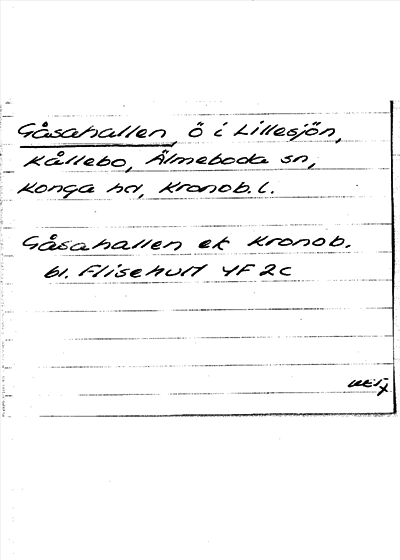 Gåsahallen, ö i Lillesjön,
Kållebo, Älmeboda sn,
Konga hd, Kronob. l.
Gåsahallen ek Kronob.
bl. Flisehult 4F 2c